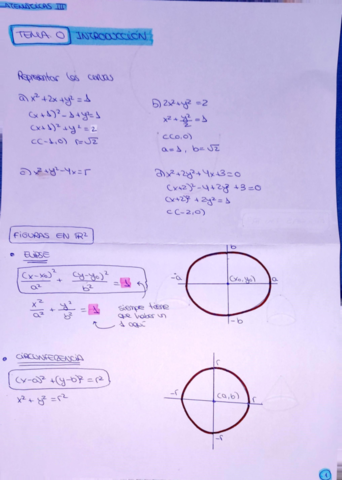 MATEMÁTICAS III
TEMA 0 INTRODUCCIÓN
Representar las curvas
a) x²+2x+y²=1
(x+1)²-1+y²=1
(x+1)²+y²=2
C(-1,0) r=√2
b) 2x²+y²=2
x²+y²/2=1
C(0,0)
a=1, b=√2
c) x²+y²-4x=5
d) x²+2y²+4x+3=0
(x+2)²-4+2y²+3=0
(x+2)²+2y²=1
C(-2,0)
FIGURAS EN ℝ²
• ELIPSE
(x-x₀)²/a² + (y-y₀)²/b² = 1
x²/a² + y²/b² = 1
siempre tiene
que haber un
1 aquí
b
-a (x₀,y₀) a
-b
• CIRCUNFERENCIA
(x-a)²+(y-b)²=r²
x²+y²=r²
r
-r (a,b) r
-r
1